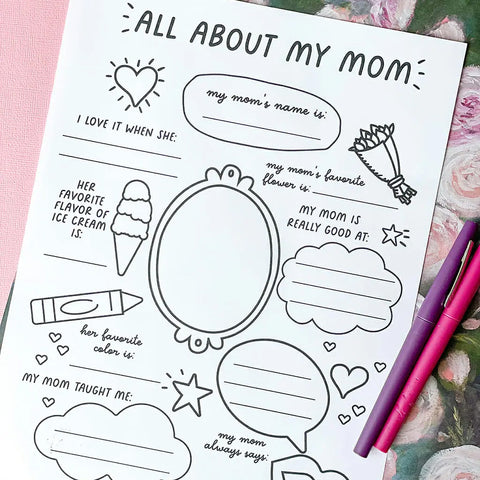 ALL ABOUT MY MOM
my mom's name is:
I LOVE IT WHEN SHE:
my mom's favorite
flower is:
HER
FAVORITE
FLAVOR OF
ICE CREAM
IS:
MY MOM IS
REALLY GOOD AT:
her favorite
color is:
MY MOM TAUGHT ME:
my mom
always says: